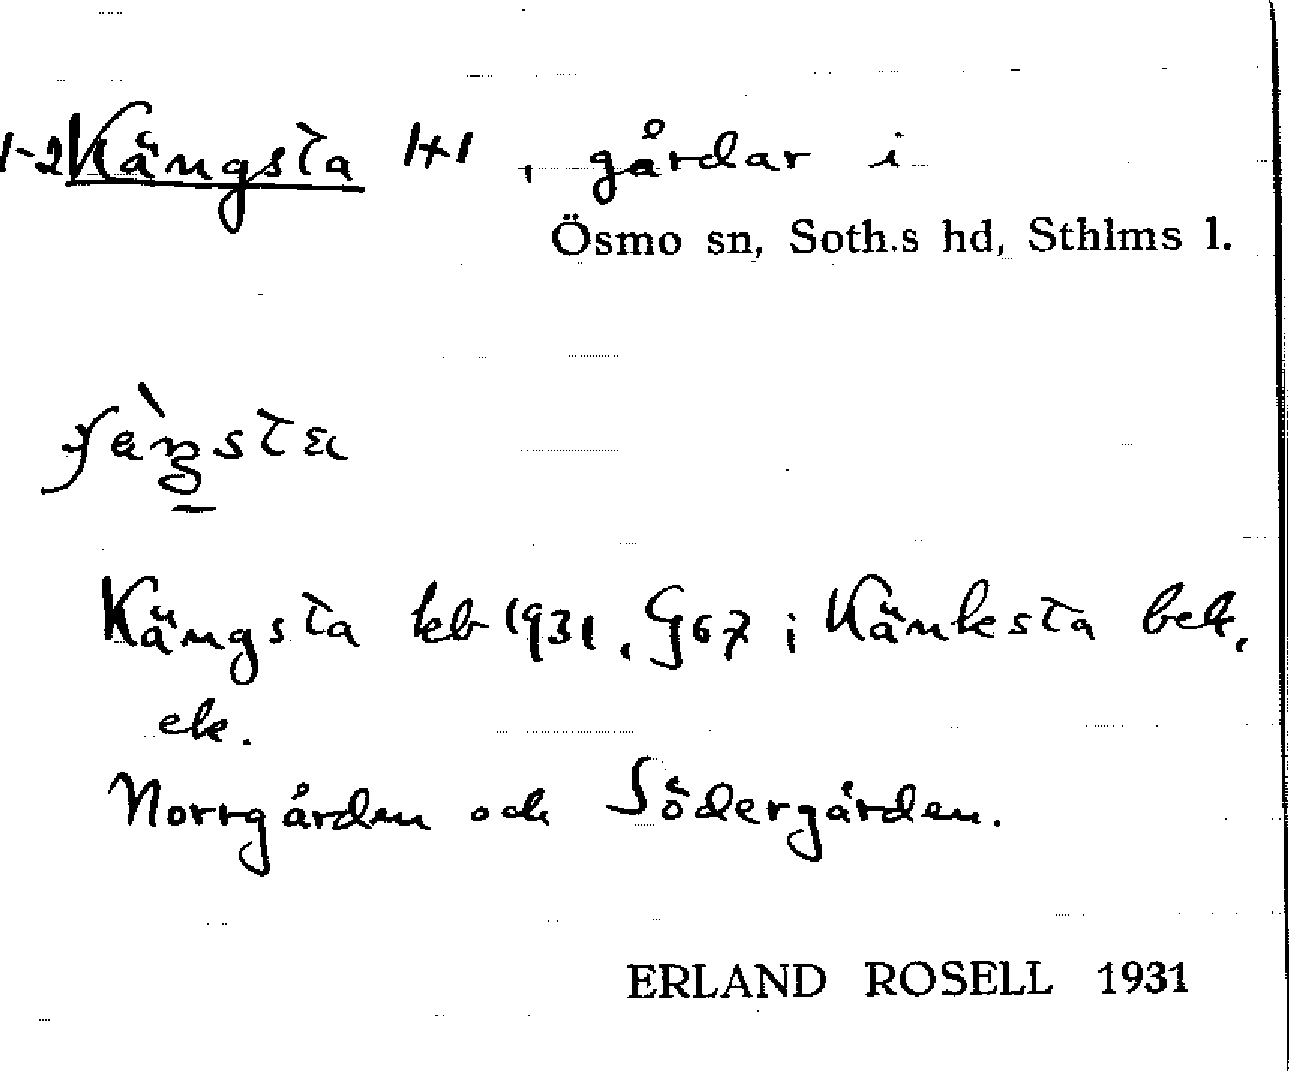 1-2 Kängsta 1+1, gårdar i
Ösmo sn, Soth.s hd, Sthlms l.
Kängsta kb 1931. G67; Känksta bek.
ek.
Norrgården och Södergården.
ERLAND ROSELL 1931